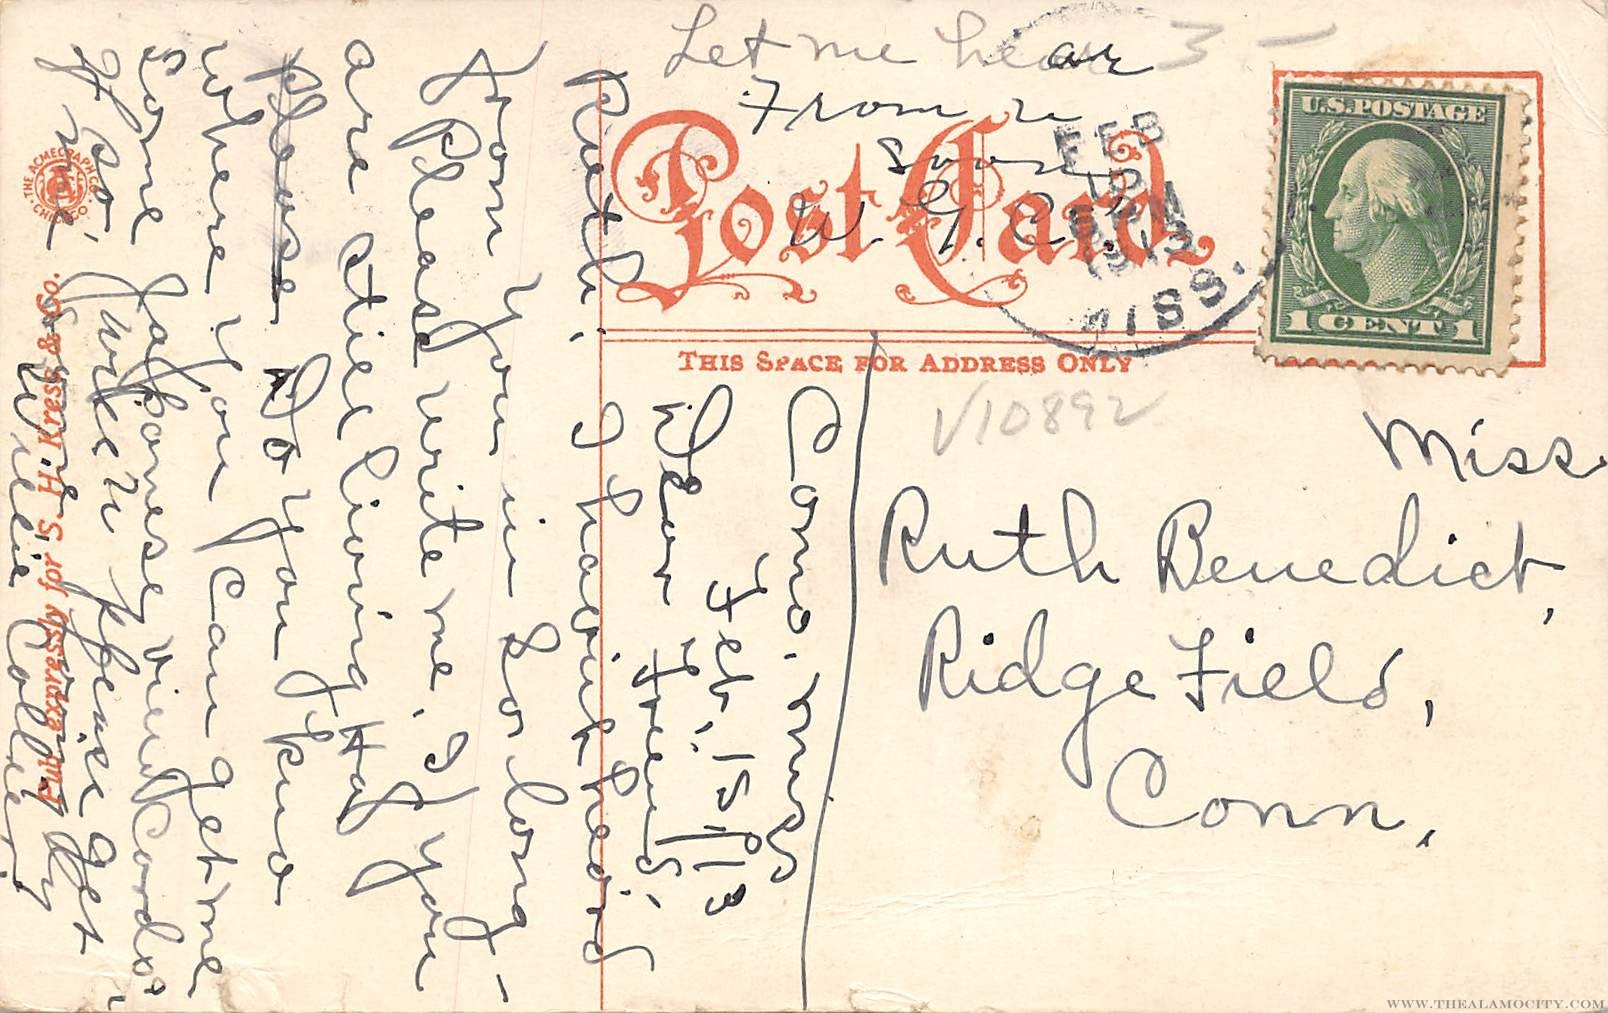 Let me hear 3 -
From u
Soon
W. G. C.
Post Card
FEB
12 M
1913
MISS.
U.S. POSTAGE
1 CENT 1
THIS SPACE FOR ADDRESS ONLY
V10892
Miss
Ruth Benedict,
Ridge Field,
Conn,
Como. miss
Feb, 15, 1913
Dear Friend,
Ruth. I havint heard
from you in so long -
Please write me. If you
are still living Ha
please Do you kno
where you can get me
some Japanese view Cards?
If so, when u please get
me
Willie Collie
THE ACMEGRAPH CO.
CHICAGO.
Pub. expressly for S. H. Kress & Co.
WWW.THEALAMOCITY.COM